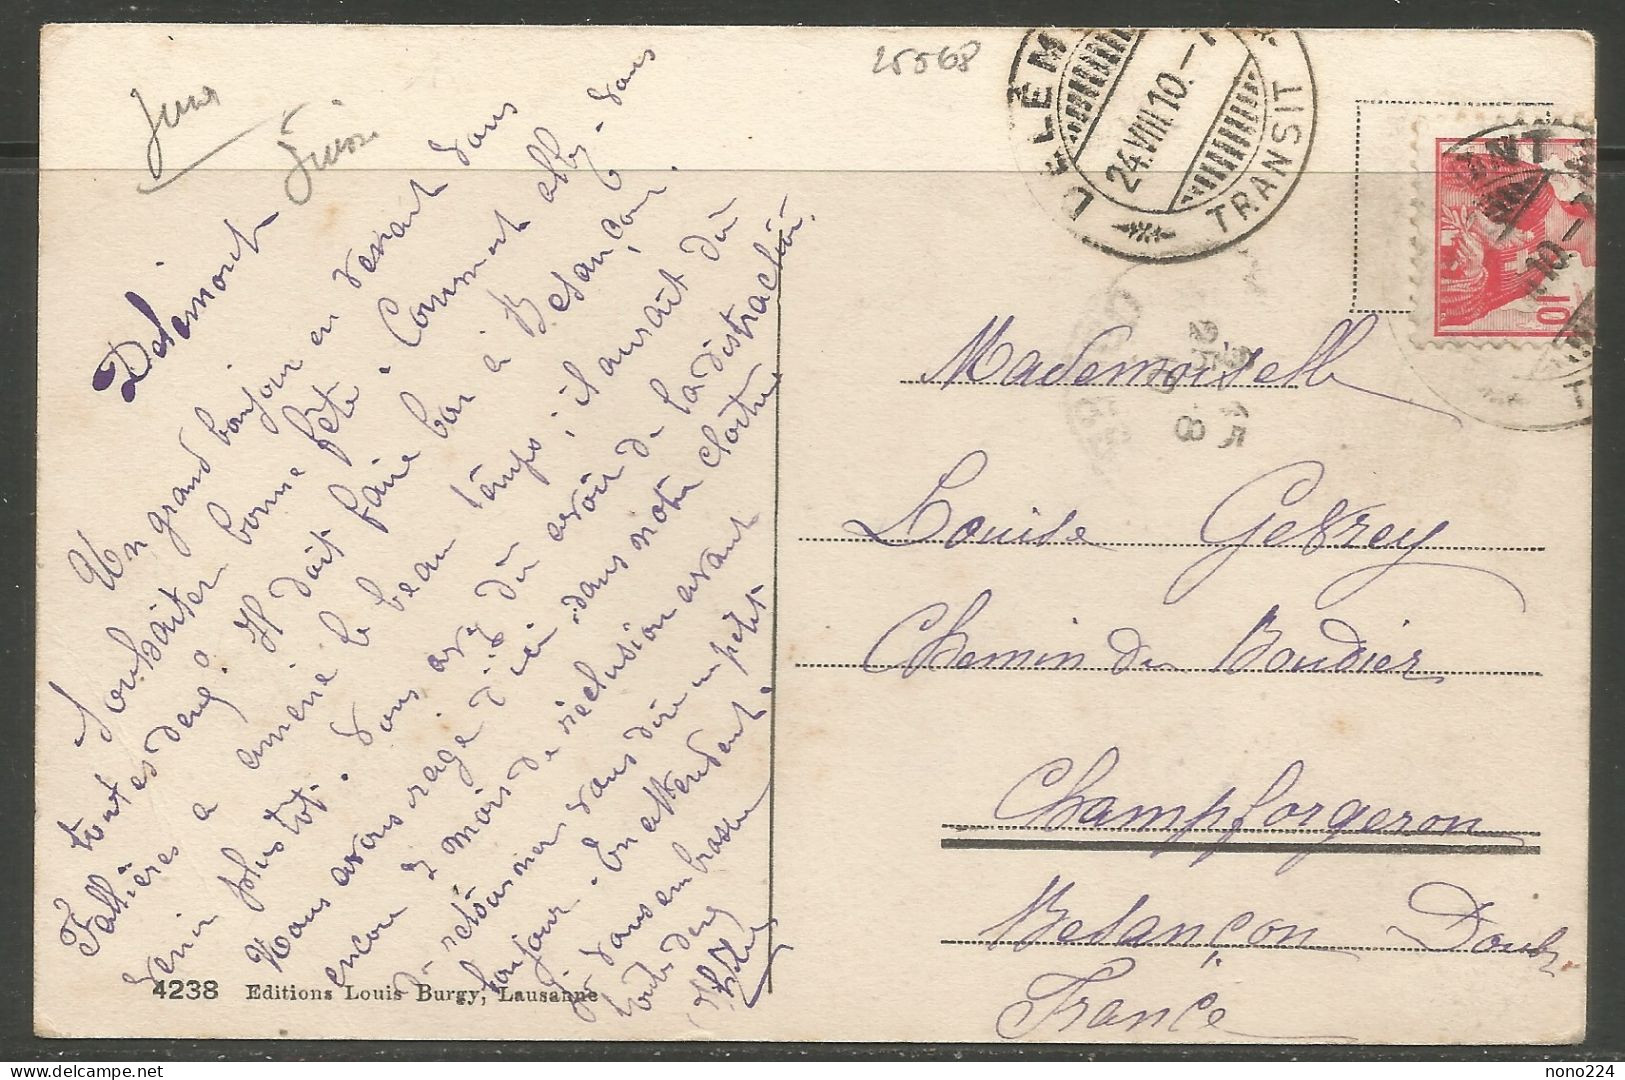 Jura
Suisse
25568
DELÉM
24.VIII.10.-
TRANSIT
10
TR
Delémont
Un grand bonjour en venant vous
souhaiter bonne fête. Comment allez-vous
toutes deux. Il doit faire bon à Besançon.
Fallières a amené le beau temps; il aurait dû
venir plus tôt. Vous avez dû avoir de la distraction.
Nous avons rage d'ici dans notre cloître
encore 2 mois de réclusion avant
de retourner vous dire un petit
bonjour. En attendant
je vous embrasse
toutes deux
Mademoiselle
Louise Gevrey
Chemin du Boudier
Champforgeron
Besançon Doubs
France
4238 Editions Louis Burgy, Lausanne
nono224